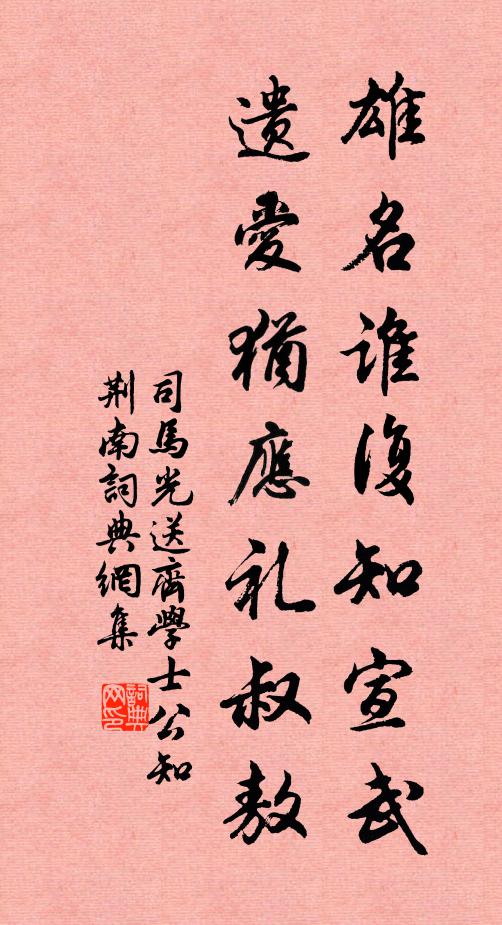 雄名谁復知宣武
遗愛猶應礼叔敖
司馬光送齊學士公知
荆南詞典網集
詞典网印